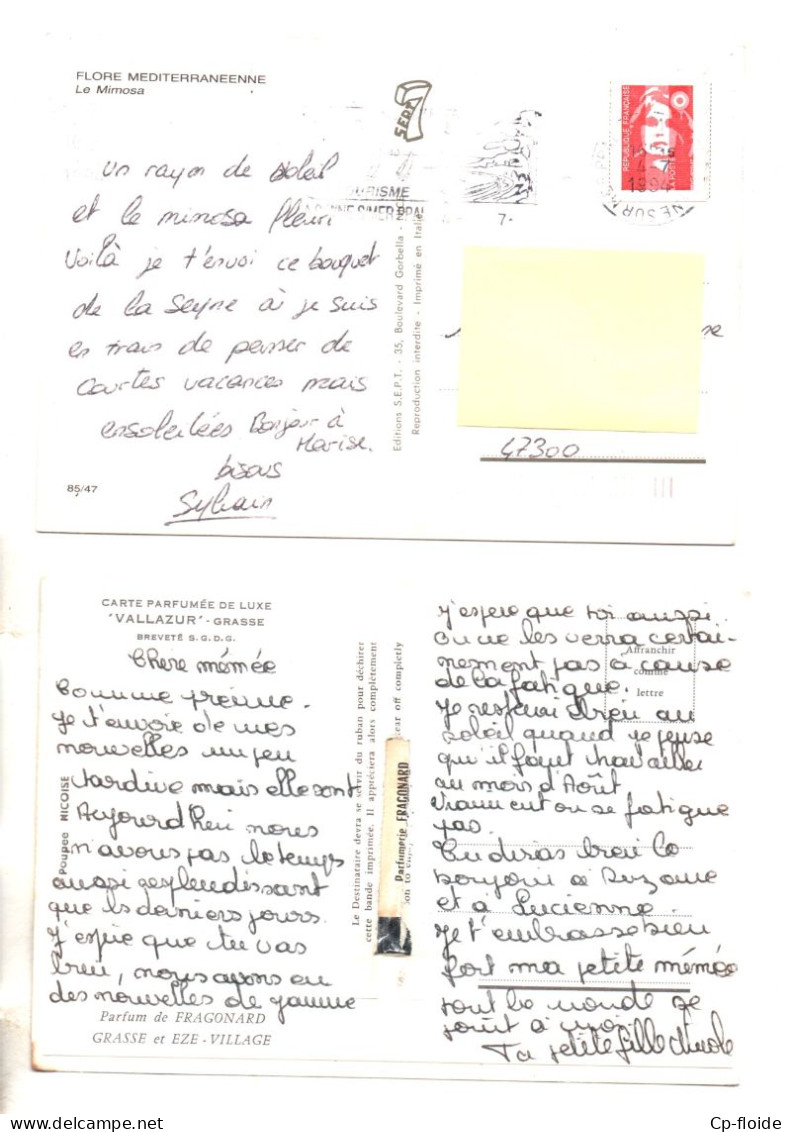 FLORE MEDITERRANEENNE
Le Mimosa
SEPT
TOURISME
RÉPUBLIQUE FRANÇAISE
4-7
1994
7-
un rayon de soleil
et le mimosa fleuri
Voilà je t'envoi ce bouquet
de la Seyne à je suis
en train de penser de
courtes vacances mais
ensoleilées Bonjour à
Marise.
bisous
Sylvain
85/47
Editions S.E.P.T. - 35, Boulevard Gorbella -
Reproduction interdite - Imprimé en Italie
47300
CARTE PARFUMÉE DE LUXE
"VALLAZUR" - GRASSE
BREVETÉ S.G.D.G.
Chère mémée
Comme prévue.
Je t'envoie de mes
nouvelles un peu
tardive mais elle sont
Aujourd'hui nous
n'avous pas le temps
aussi resplendissant
que les derniers jours.
J'espère que tu vas
bien, nous avons eu
des nouvelles de
Poupée NICOISE
Parfum de FRAGONARD
GRASSE et EZE - VILLAGE
Le Destinataire devra se servir du ruban pour déchirer
cette bande imprimée. Il appréciera alors complètement
tear off completely
Parfumerie FRAGONARD
Affranchir
comme
lettre
J'espère que toi aussi.
On ne les verra certai-
nement pas à cause
de la fatigue.
Je bien au
soleil quand je pense
qu'il faut travailler
au mois d'Août.
Vraiment on se fatigue
pas.
Tu diras bien le
bonjour à Suzanne
et à Lucienne.
Je t'embrasse bien
fort ma petite mémée
tout le monde se
joint à moi.
Ta petite fille
Cp-floide